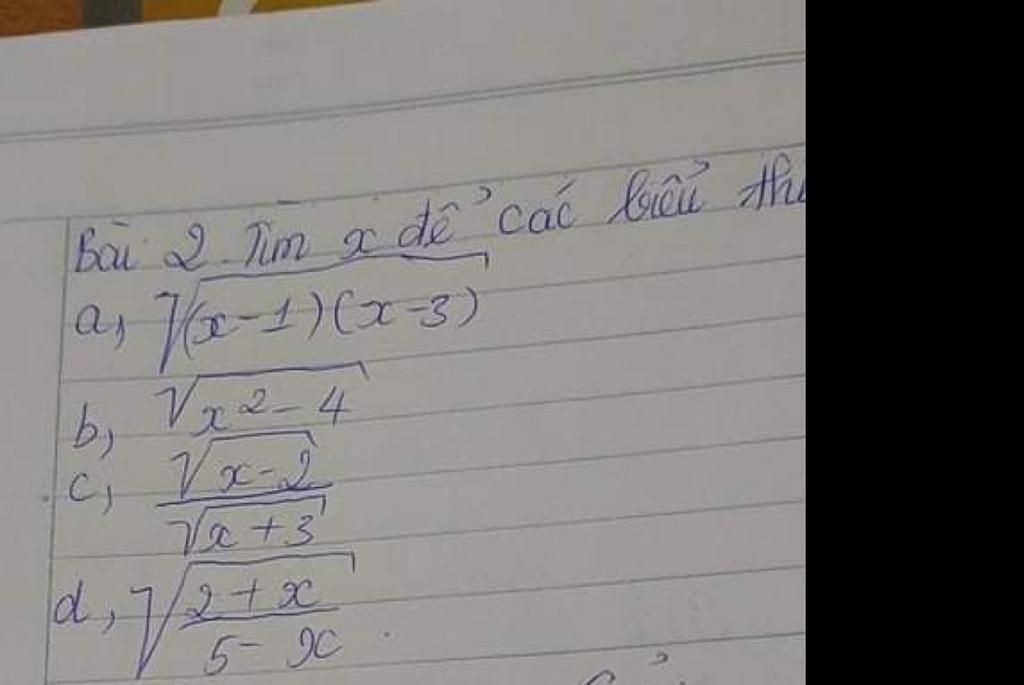 Bài 2. Tìm x để các biểu
a, √(x-1)(x-3)
b, √x²-4
c, √x-2 / √x+3
d, √2+x / 5-x.